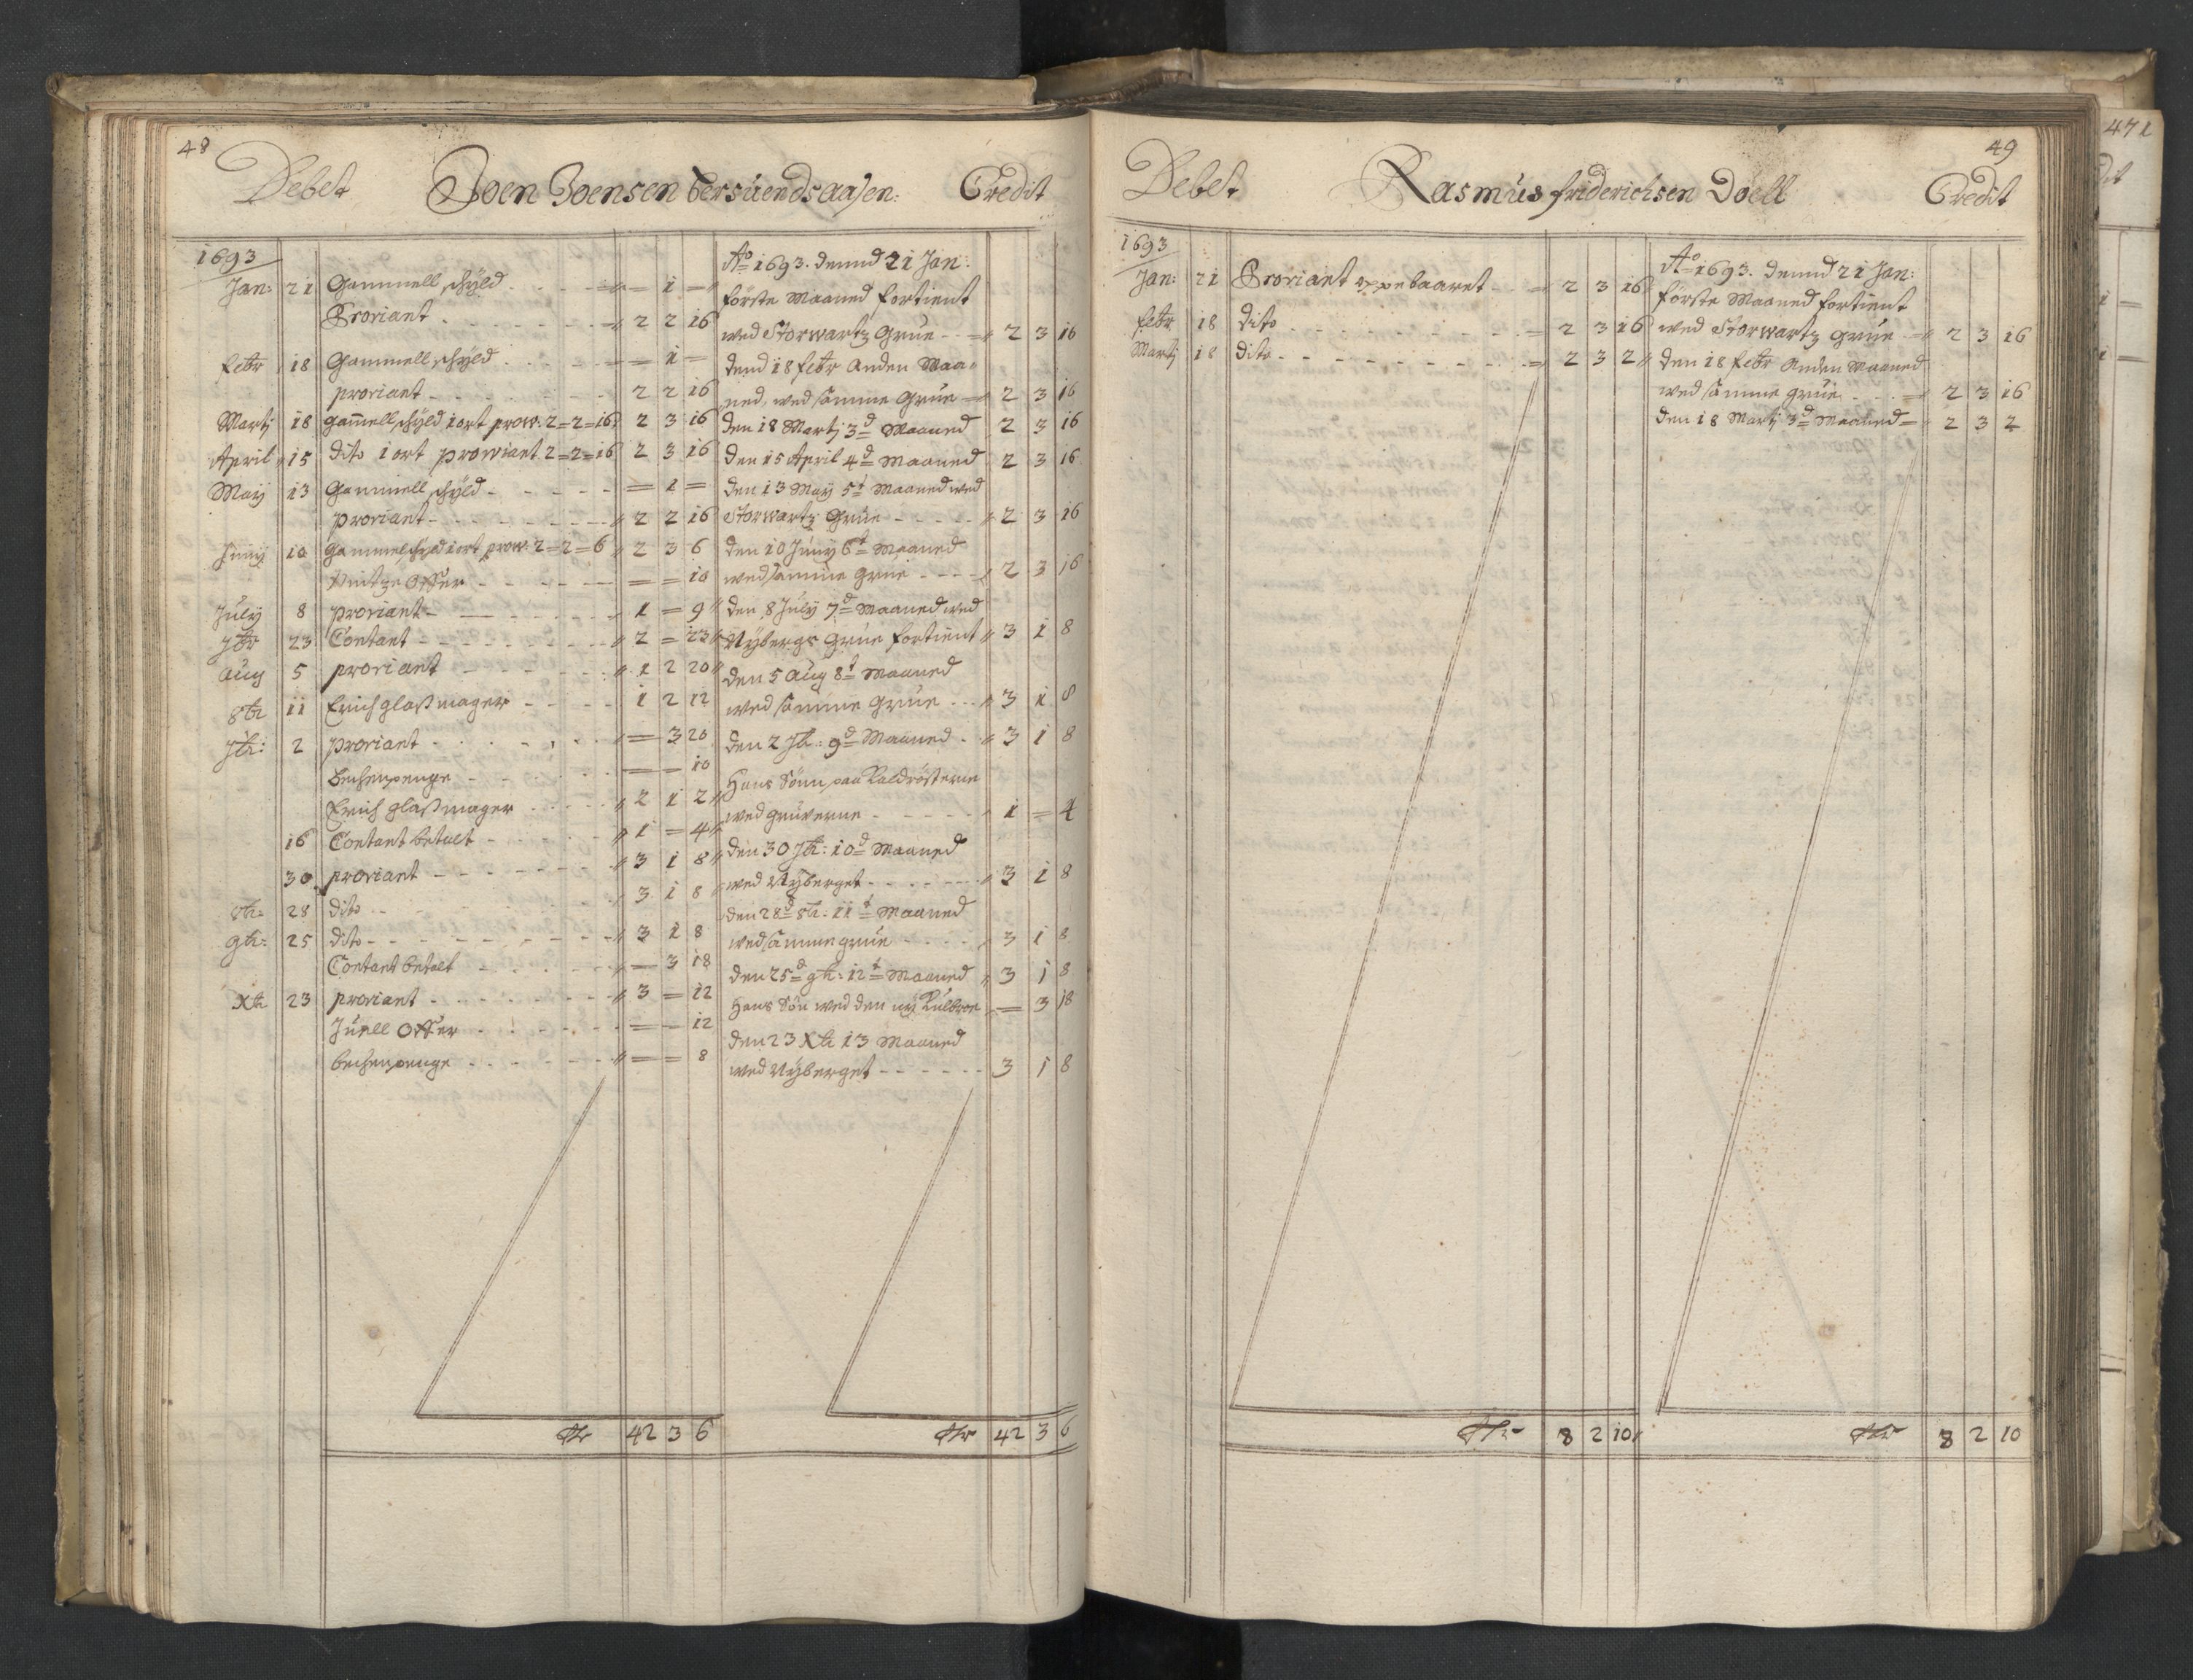 48
Debet Joen Joensen Bersuendsaasen: Credit
1693
Jan: 21 Gammell schÿld - - - = 1 =
Proviant - - - 2 2 16
Febr 18 Gammell schÿld - - - = 1 =
proviant - - - 2 2 16
Martj 18 gam̄ell schÿld 1 ort prow: 2=2=16 2 3 16
April 15 dito 1 ort prowiant 2=2=16 2 3 16
Maÿ 13 Gammell schÿld - - - = 1 =
proviant - - - 2 2 16
Junÿ 10 gammel schÿld 1 ort prow: 2=2=6 2 3 6
Offer - - - = = 10
Julÿ 8 proviant - - - 1 = 9
7br 23 Contant - - - 2 = 23
Aug 5 proviant - - - 1 2 20
8br 11 Erich glaßmager - - - 1 2 12
7br: 2 proviant - - - = 3 20
Bechenpenge - - - = = 10
Erich glaßmager - - - 2 1 2
16 Contant betalt - - - 1 = 4
30 proviant - - - 3 1 8
8br: 28 dito - - - 3 1 8
9br: 25 dito - - - 3 1 8
Contant betalt - - - = 3 18
Xbr 23 proviant - - - 3 = 12
Juell Offer - - - = = 12
bechenpenge - - - = = 8
Rdr 42 3 6
Ao 1693. dennd 21 Jan:
förste Maaned fortient
wed Storwartz Grue - - 2 3 16
dend 18 febr Anden Maa=
ned, wed samme Grue - 2 3 16
den 18 Martj 3d Maaned 2 3 16
den 15 April 4d Maaned 2 3 16
den 13 Maÿ 5t Maaned wed
Storwartz Grue - - - 2 3 16
den 10 Junÿ 6t Maaned
wed samme Grue - - - 2 3 16
den 8 Julÿ 7d Maaned wed
Nÿbergs Grue fortient 3 1 8
den 5 Aug 8t Maaned
wed samme Grue - - - 3 1 8
den 2 7br: 9d Maaned - 3 1 8
Hans Sönn paa Kaldrösterne
wed gruverne - - - 1 = 4
den 30 7br: 10d Maaned
wed Nÿberget - - - 3 1 8
den 28d 8br: 11t Maaned
wed samme grue - - - 3 1 8
den 25d 9br: 12t Maaned 3 1 8
Hans Sön wed den nÿ = 3 18
den 23 Xbr 13 Maaned
wed Nÿberget - - - 3 1 8
Rdr 42 3 6
49
Debet Rasmus friderichsen Döell Credit
1693
Jan: 21 Proviant oppebaaret - = 2 3 16
febr 18 dito - - - = 2 3 16
Martj 18 dito - - - = 2 3 2
Rdr 8 2 10
Ao 1693. dennd 21 Jan:
förste Maaned fortient
wed Storwartz grue - 2 3 16
den 18 febr Anden Maaned
wed samme grue - - - 2 3 16
den 18 Martj 3d Maaned = 2 3 2
Rdr 8 2 10
471